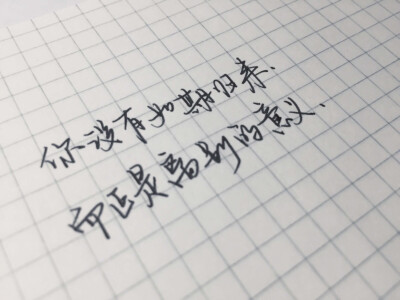 你没有如期归来.
而正是离别的意义.